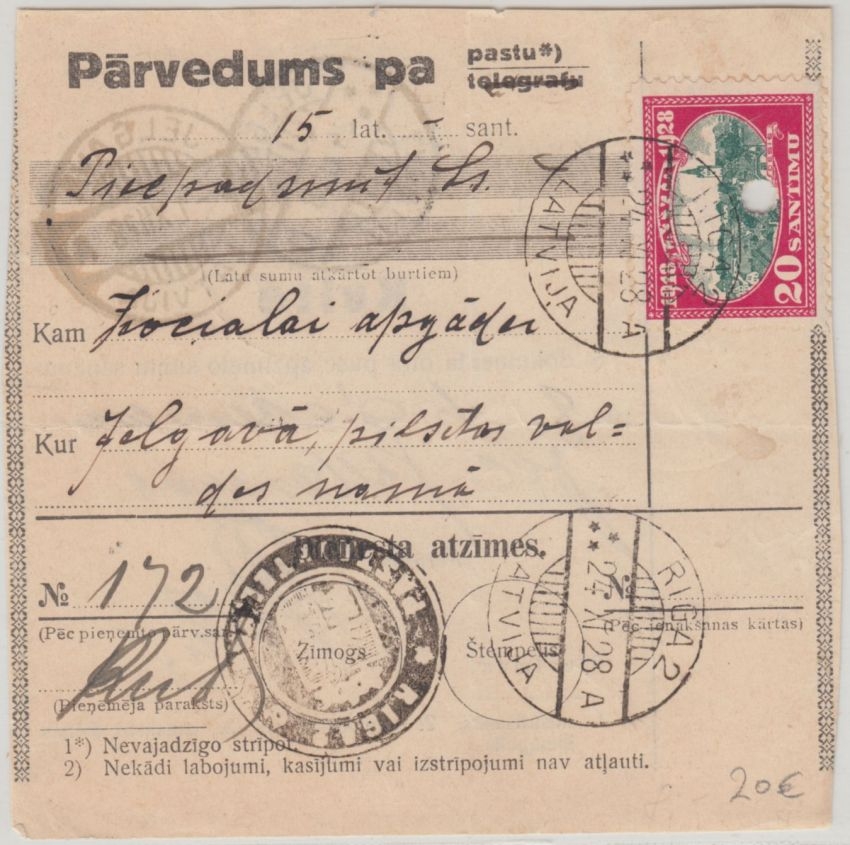 Pārvedums pa pastu*)
telegrafu
15 lat. - sant.
Piecpadsmit Ls.
(Latu sumu atkārtot burtiem)
Kam Zocialai apgādei
Kur Jelgavā, pilsētas val=
des namā
Dienesta atzīmes.
№ 172
№
(Pēc pieņemto pārv. sar
(Pēc ienākšanas kārtas)
Zīmogs
Štempelis
(Pieņēmēja paraksts)
1*) Nevajadzīgo strīpot.
2) Nekādi labojumi, kasījumi vai izstrīpojumi nav atļauti.
20€
1918 LATVIJA 1928
RIGA
20 SANTIMU
LATVIJA
24 XI 28 A
RIGA 2
24 XI 28 A
LATVIJA
RIGA
JELGAVA